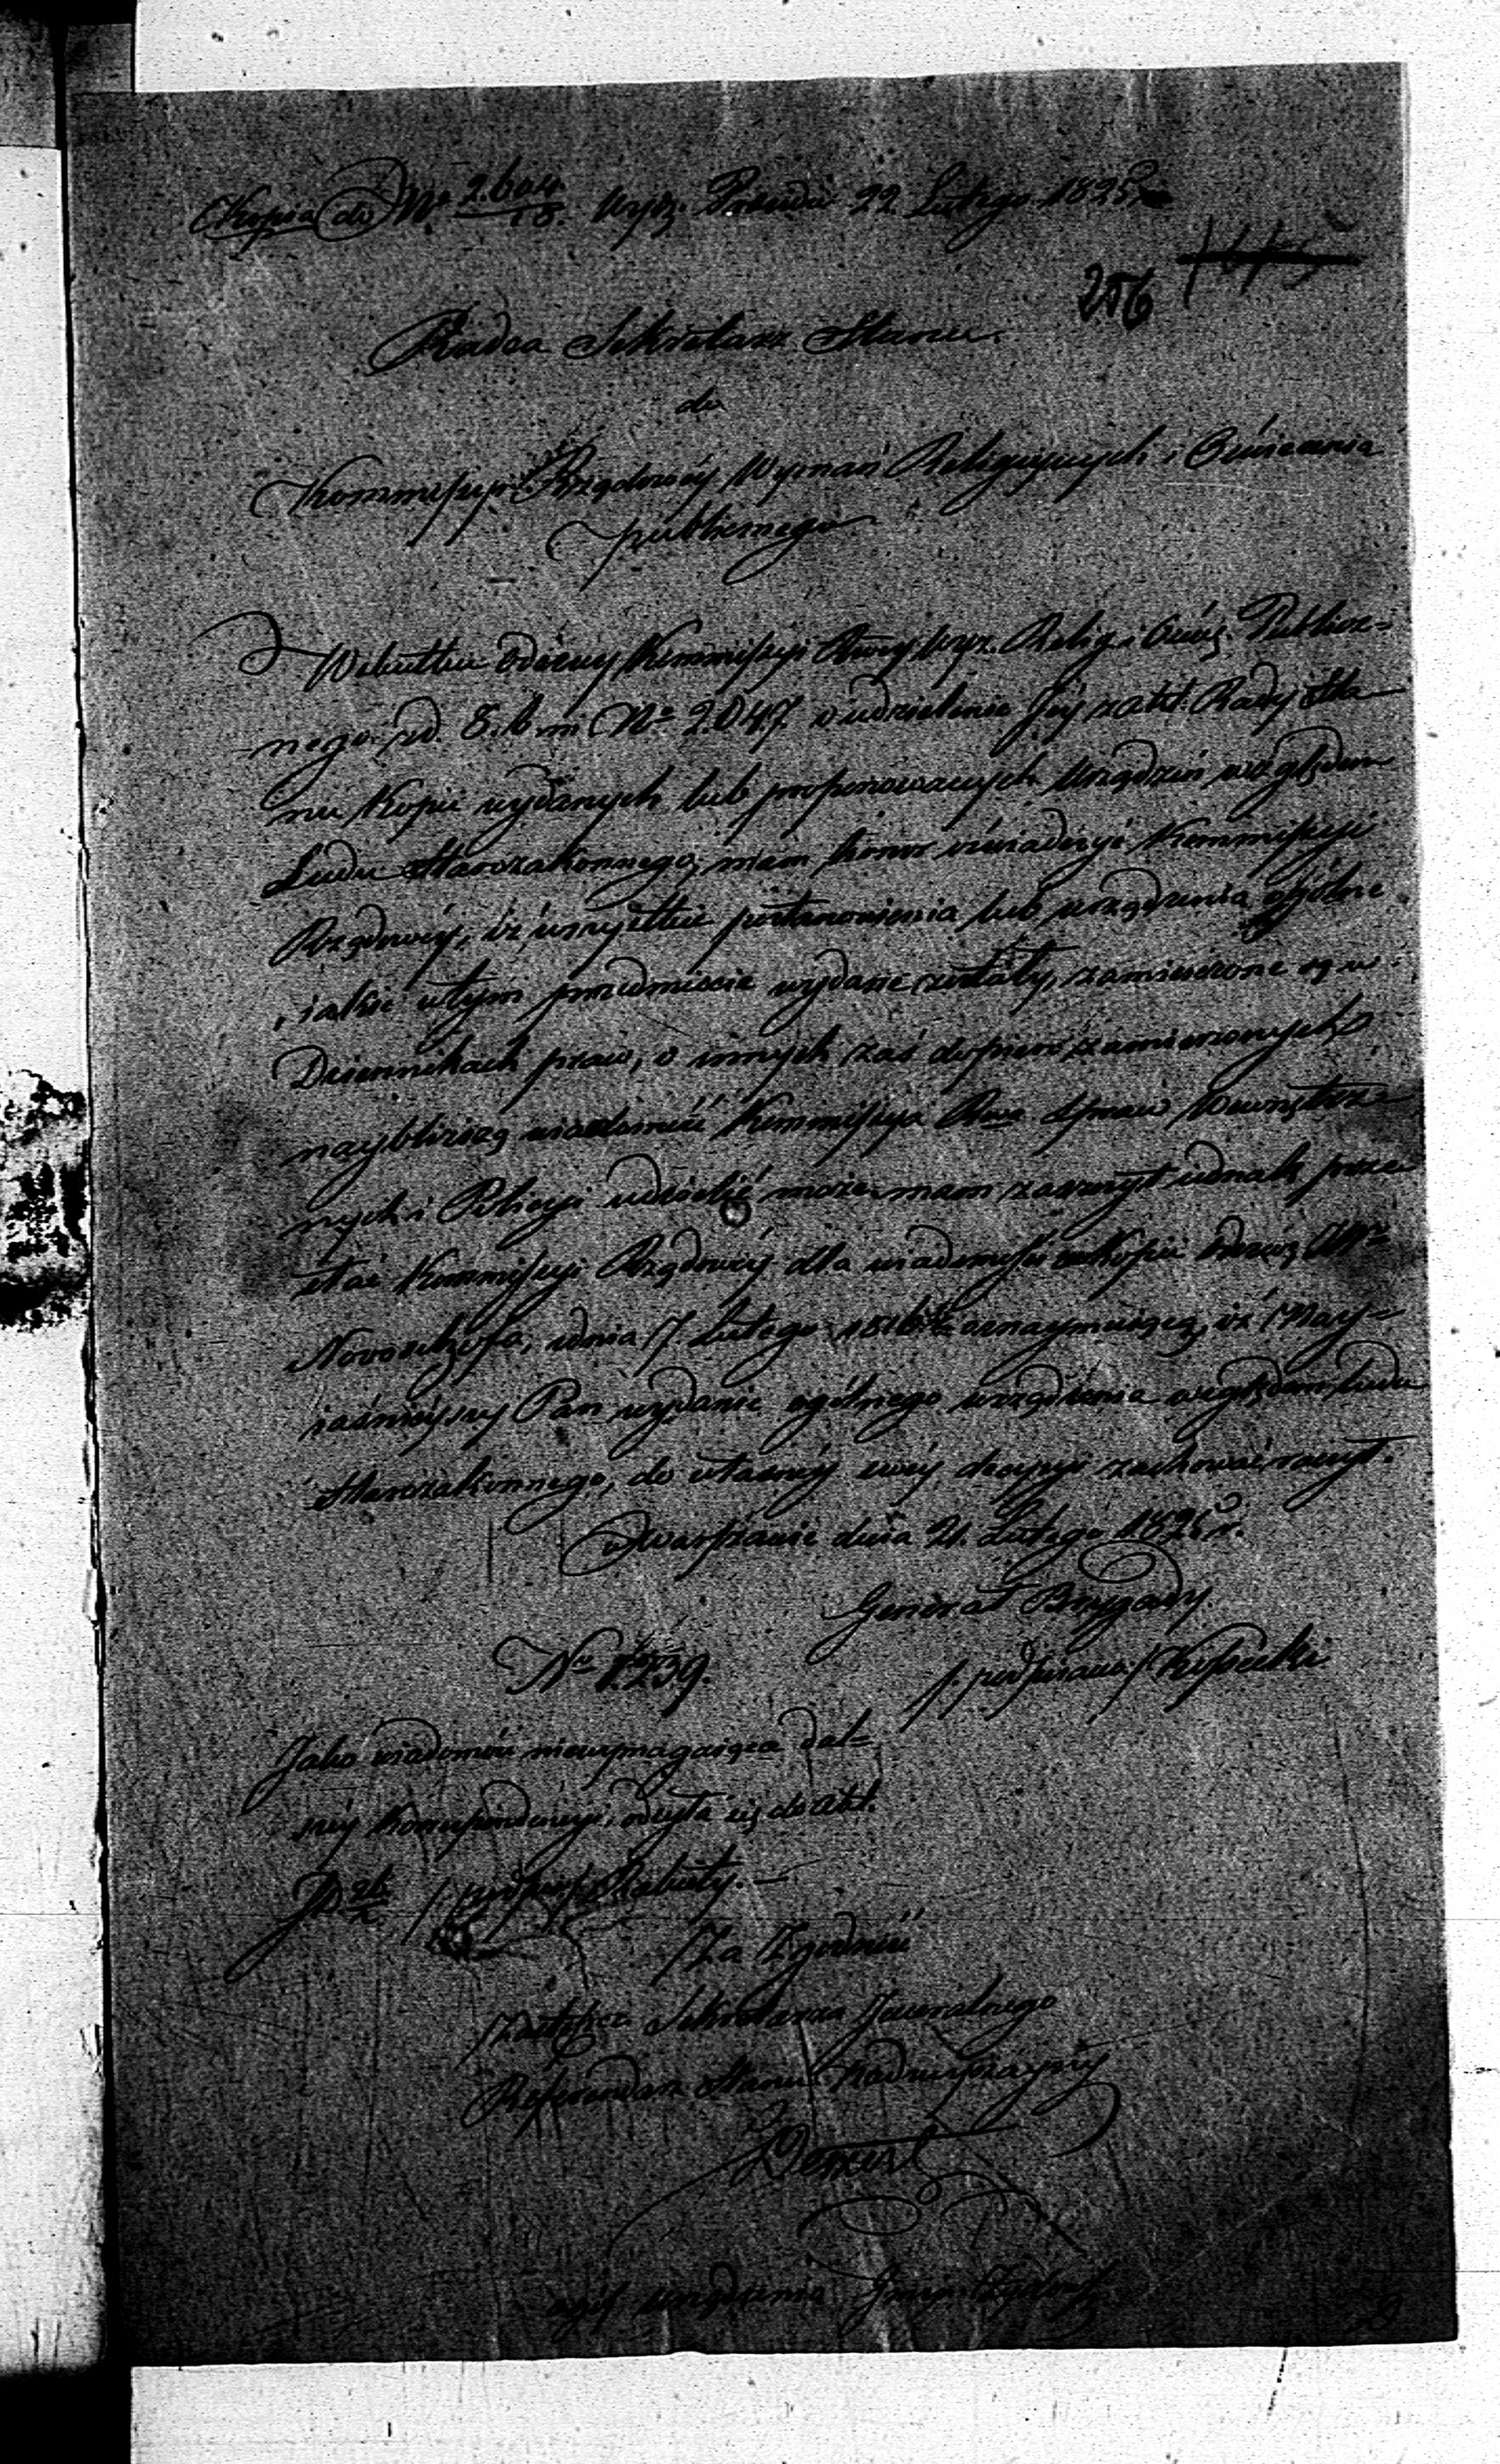 Kopia do Nº 2.604/10. Wyz. Prezid. 22. Lutego 1825r
256
Radca Sekretarz Stanu
do
Kommissyi Rządowéy Wyznań Religiynych i Oświecenia
publicznego
W skutku odezwy Kommissyi Rwéy Wyz. Relig. i Ośw. Publicz=
nego z d. 8. b. m. Nº 2.047 o udzielenie Jéy z akt Rady Sta
nu Kopii wydanych lub proponowanych Urządzeń względem
Ludu Starozakonnego, mam honor oświadczyć Kommissyi
Rządowéy, iż wszystkie postanowienia lub urządzenia ogólne
iakie w tym przedmiocie wydane zostały, zamieszczone są w
Dziennikach praw, o innych zaś dopiero zamierzonych
naybliższą wiadomość Kommissya Rwa Spraw Wewnętrz=
nych i Policyi udzielić może, mam zaszczyt iednak prze
słać Kommissyi Rządowéy dla wiadomości Kopii odezwę
Nowosilzoffa, z dnia 17 Lutego 1816 r. oznaymuiącą, iż Nay=
iaśnieyszy Pan wydanie ogólnego urządzenia względem Ludu
Starozakonnego, do własnéy swéy decyzyi zachować raczył.
w Warszawie dnia 21. Lutego 1825 r.
Generał Brygady
/. podpisano / Kossecki
Nº 1.239.
Jako wiadomość niewymagaiąca dal=
széy Korrespondencyi, odsyła się do Akt.
/ podpis /
Za Zgodność
Zastępca Sekretarza Jeneralnego
Referendarz Stanu Nadzwyczayny
urządzenia Gmin Żydows